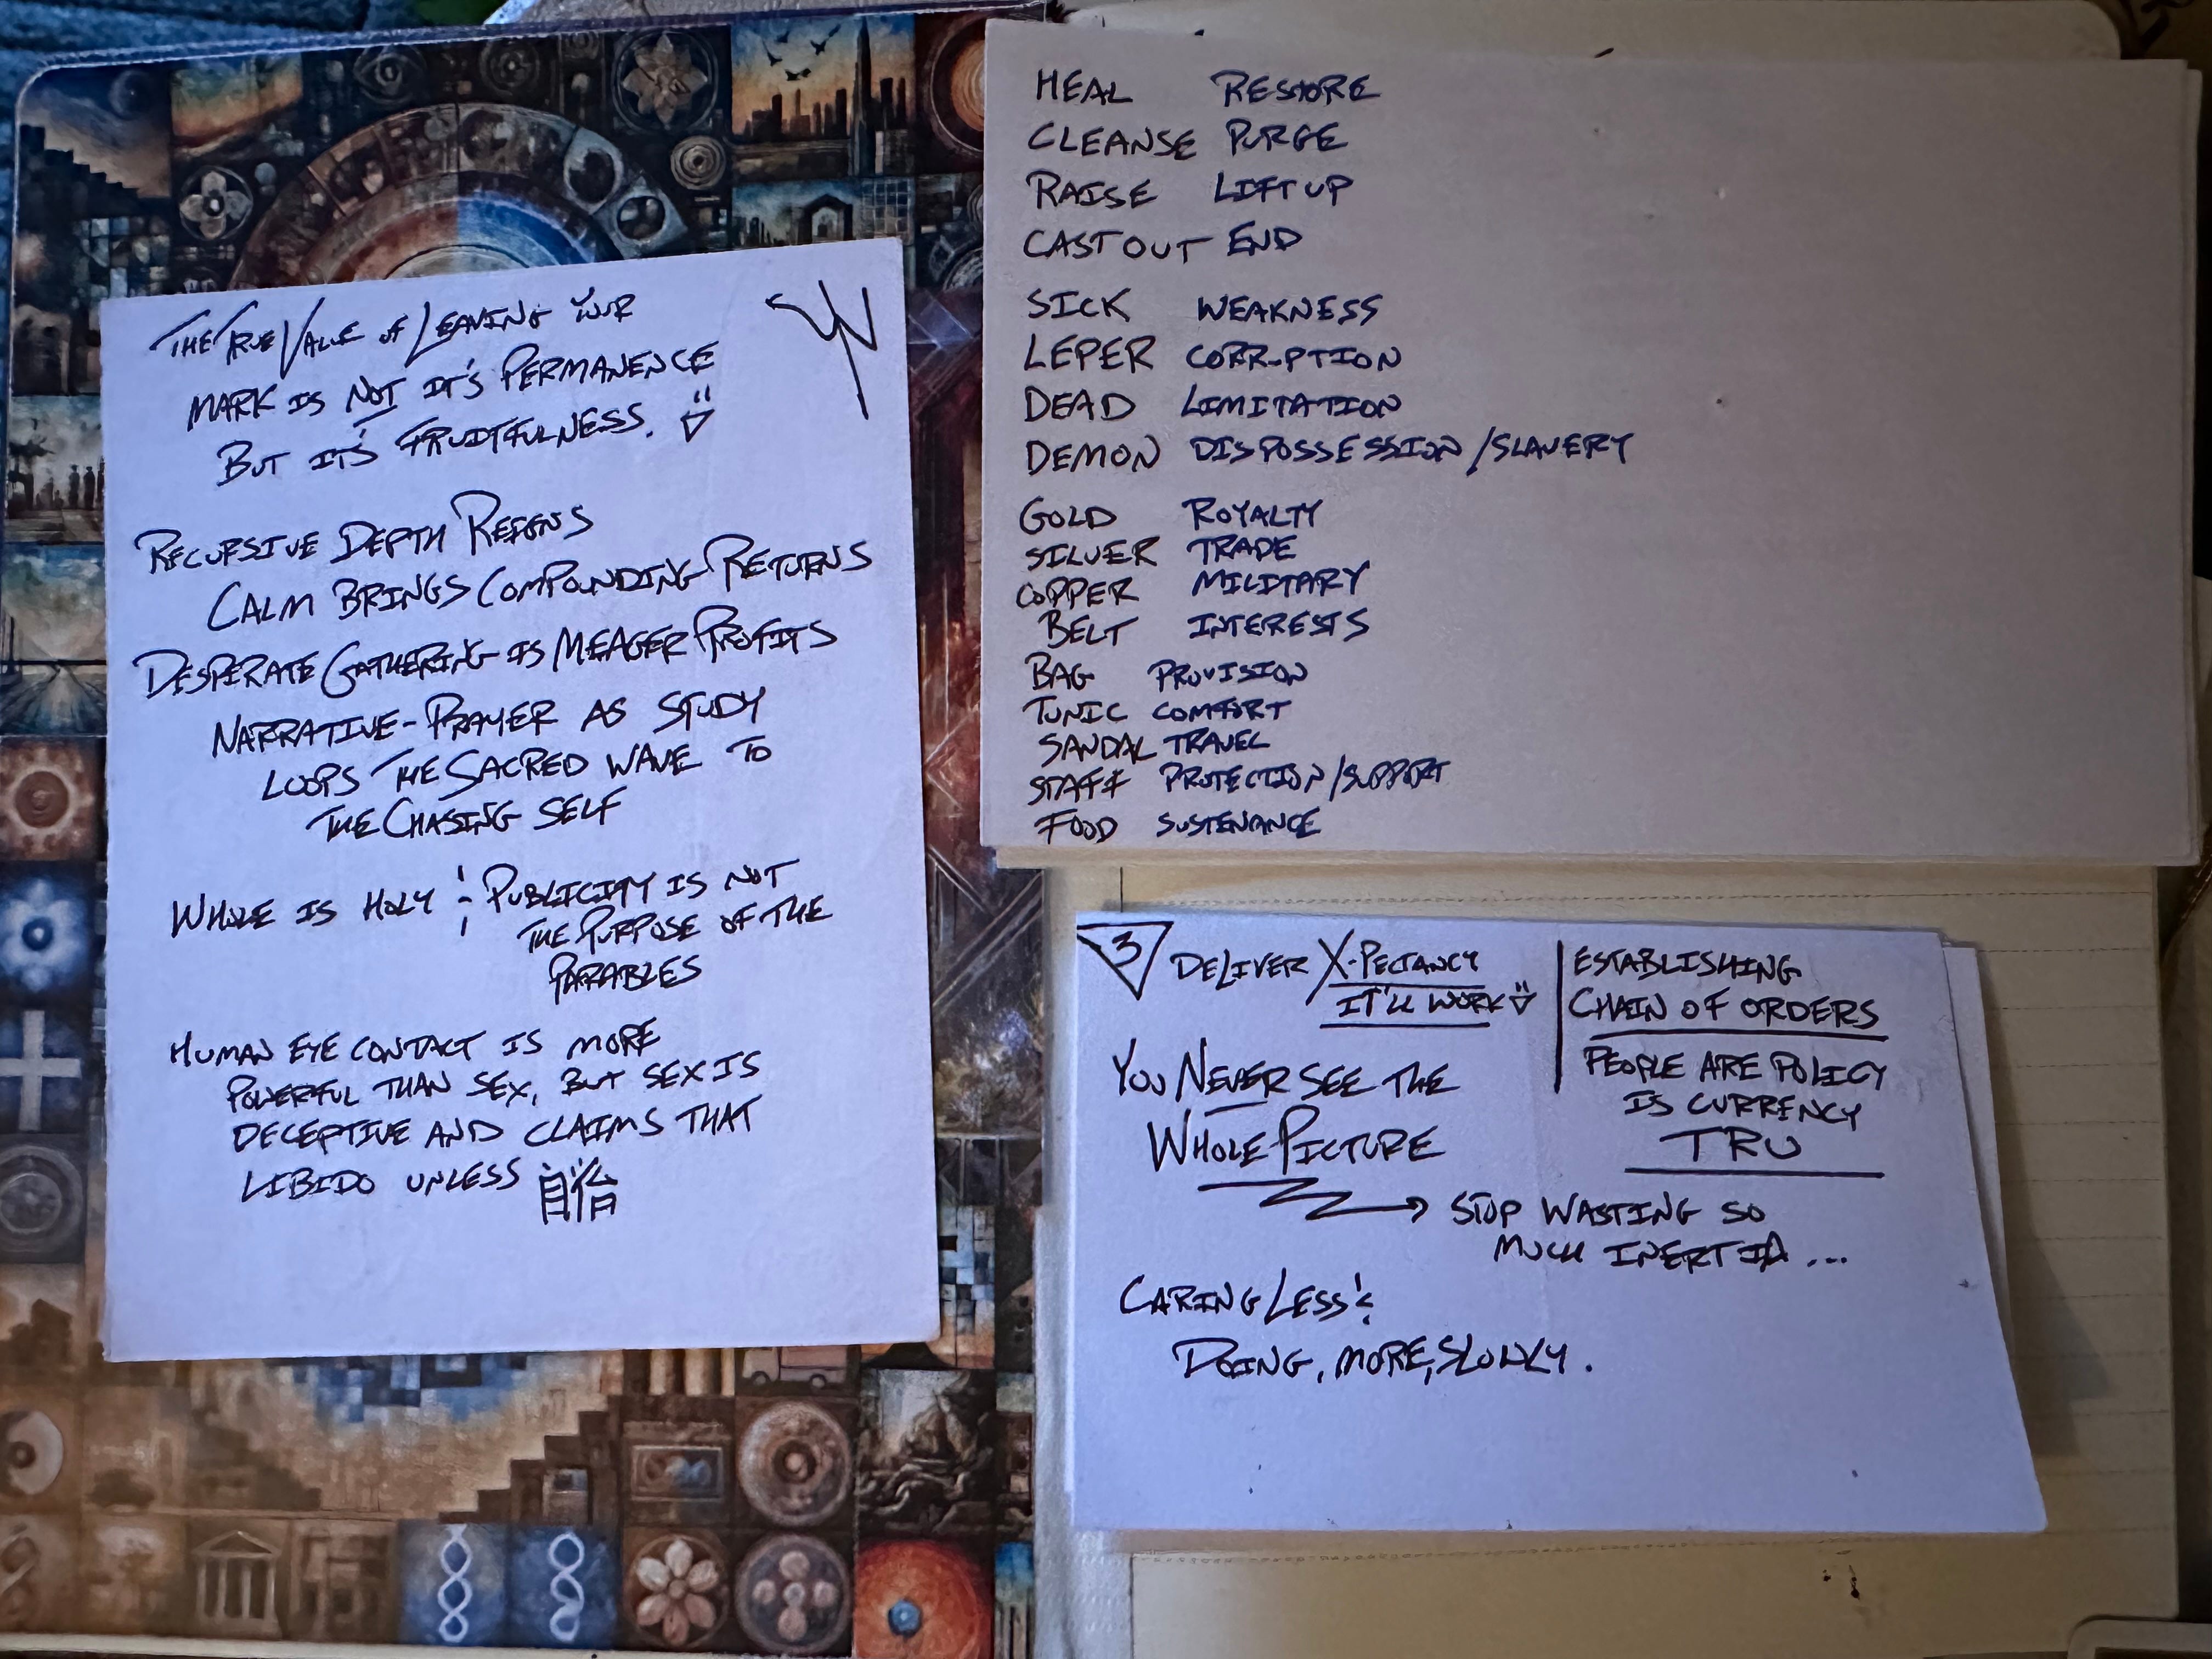 THE TRUE VALUE OF LEAVING YOUR
MARK IS NOT IT'S PERMANENCE
BUT IT'S FRUITFULNESS.
RECURSIVE DEPTH REIGNS
CALM BRINGS COMPOUNDING RETURNS
DESPERATE GATHERING IS MEAGER PROFITS
NARRATIVE-PRAYER AS STUDY
LOOPS THE SACRED WAVE TO
THE CHASING SELF
WHOLE IS HOLY PUBLICITY IS NOT
THE PURPOSE OF THE
PARABLES
HUMAN EYE CONTACT IS MORE
POWERFUL THAN SEX, BUT SEX IS
DECEPTIVE AND CLAIMS THAT
LIBIDO UNLESS
HEAL RESTORE
CLEANSE PURGE
RAISE LIFT UP
CAST OUT END
SICK WEAKNESS
LEPER CORR-PTION
DEAD LIMITATION
DEMON DISPOSSESSION/SLAVERY
GOLD ROYALTY
SILVER TRADE
COPPER MILITARY
BELT INTERESTS
BAG PROVISION
TUNIC COMFORT
SANDAL TRAVEL
STAFF PROTECTION/SUPPORT
FOOD SUSTENANCE
3 DELIVER X-PECTANCY
IT'LL WORK
YOU NEVER SEE THE
WHOLE PICTURE
ESTABLISHING
CHAIN OF ORDERS
PEOPLE ARE POLICY
IS CURRENCY
TRU
STOP WASTING SO
MUCH INERTIA ...
CARING LESS
DOING, MORE, SLOWLY.